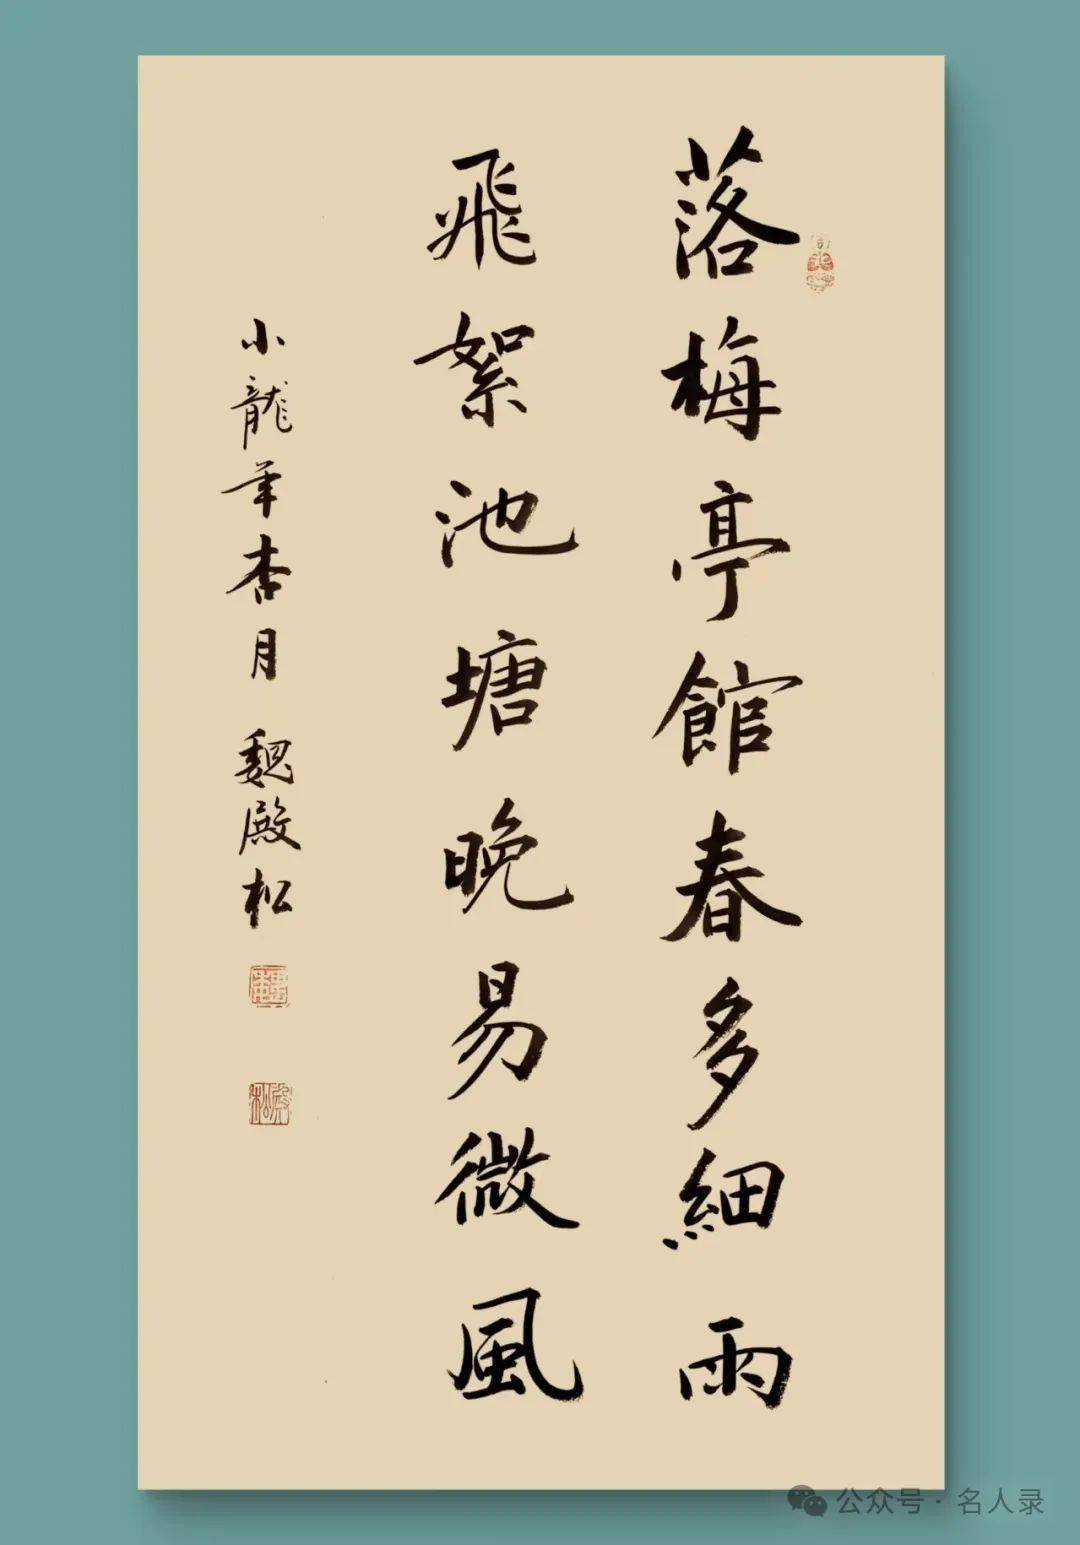 落梅亭館春多細雨
飛絮池塘晚易微風
小龍年杏月 魏殿松
公众号·名人录